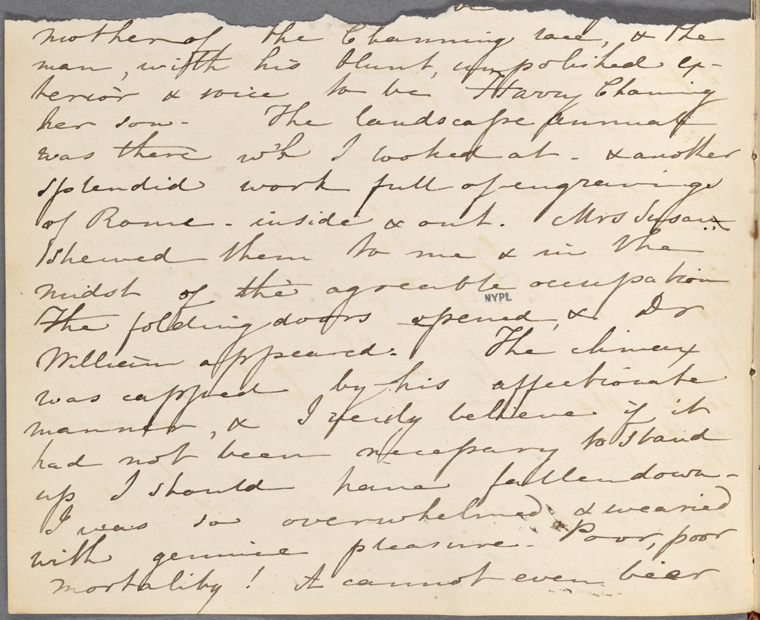 mother of the Channing race, & the
man, with his blunt, unpolished ex-
terior & voice to be Harry Channing
her son - The landscape annual
was there wh I looked at - & another
splendid work full of engravings
of Rome - inside & out. Mrs Susan
shewed them to me & in the
midst of the agreeable occupation
NYPL
The folding doors opened, & Dr
William appeared. The climax
was capped by his affectionate
manner, & I verily believe if it
had not been necessary to stand
up I should have fallen down -
I was so overwhelmed & wearied
with genuine pleasure - Poor, poor
mortality! It cannot even bear